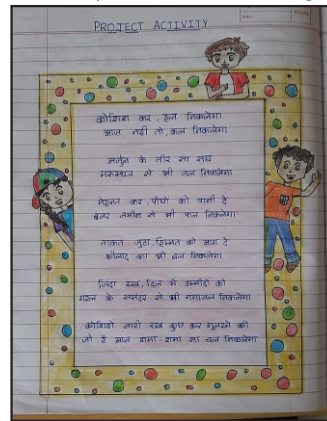 PROJECT ACTIVITY
कोशिश कर, हल निकलेगा
आज नही तो, कल निकलेगा
अर्जुन के तीर सा सध
मरुस्थल से भी जल निकलेगा
मेहनत कर, पौधों को पानी दे
बंजर जमीन से भी फल निकलेगा
ताकत जुटा, हिम्मत को आग दे
फौलाद का भी बल निकलेगा
जिंदा रख, दिल में उम्मीदों को
गरल के समंदर से भी गंगाजल निकलेगा
कोशिशें जारी रख कुछ कर गुजरने की
जो है आज थमा-थमा सा चल निकलेगा